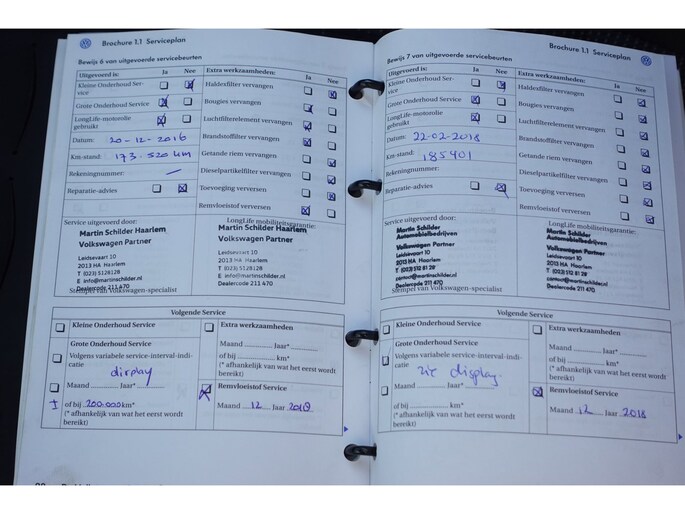 Brochure 1.1 Serviceplan
Bewijs 6 van uitgevoerde servicebeurten
Uitgevoerd is: Ja Nee
Kleine Onderhoud Ser-
vice
Grote Onderhoud Service
LongLife-motorolie
gebruikt
Datum: 20-12-2016
Km-stand: 173.520 km
Rekeningnummer:
Reparatie-advies
Extra werkzaamheden: Ja Nee
Haldexfilter vervangen
Bougies vervangen
Luchtfilterelement vervangen
Brandstoffilter vervangen
Getande riem vervangen
Dieselpartikelfilter vervangen
Toevoeging verversen
Remvloeistof verversen
Service uitgevoerd door:
Martin Schilder Haarlem
Volkswagen Partner
Leidsevaart 10
2013 HA Haarlem
T (023) 5128128
E info@martinschilder.nl
Dealercode 211 470
Stempel van Volkswagen-specialist
LongLife mobiliteitsgarantie:
Martin Schilder Haarlem
Volkswagen Partner
Leidsevaart 10
2013 HA Haarlem
T (023) 5128128
E info@martinschilder.nl
Dealercode 211 470
Volgende Service
Kleine Onderhoud Service
Grote Onderhoud Service
Volgens variabele service-interval-indi-
catie display
Maand Jaar*
of bij 200.000 km*
(* afhankelijk van wat het eerst wordt
bereikt)
Extra werkzaamheden
Maand Jaar*
of bij km*
(* afhankelijk van wat het eerst wordt
bereikt)
Remvloeistof Service
Maand 12 Jaar 2018
Brochure 1.1 Serviceplan
Bewijs 7 van uitgevoerde servicebeurten
Uitgevoerd is: Ja Nee
Kleine Onderhoud Ser-
vice
Grote Onderhoud Service
LongLife-motorolie
gebruikt
Datum: 22-02-2018
Km-stand: 185401
Rekeningnummer:
Reparatie-advies
Extra werkzaamheden: Ja Nee
Haldexfilter vervangen
Bougies vervangen
Luchtfilterelement vervangen
Brandstoffilter vervangen
Getande riem vervangen
Dieselpartikelfilter vervangen
Toevoeging verversen
Remvloeistof verversen
Service uitgevoerd door:
Martin Schilder
Automobielbedrijven
Volkswagen Partner
Leidsevaart 10
2013 HA Haarlem
T (023) 512 81 28
contact@martinschilder.nl
Dealercode 211 470
Stempel van Volkswagen-specialist
LongLife mobiliteitsgarantie:
Martin Schilder
Automobielbedrijven
Volkswagen Partner
Leidsevaart 10
2013 HA Haarlem
T (023) 512 81 28
contact@martinschilder.nl
Dealercode 211 470
Volgende Service
Kleine Onderhoud Service
Grote Onderhoud Service
Volgens variabele service-interval-indi-
catie zie display
Maand Jaar*
of bij km*
(* afhankelijk van wat het eerst wordt
bereikt)
Extra werkzaamheden
Maand Jaar*
of bij km*
(* afhankelijk van wat het eerst wordt
bereikt)
Remvloeistof Service
Maand 12 Jaar 2018